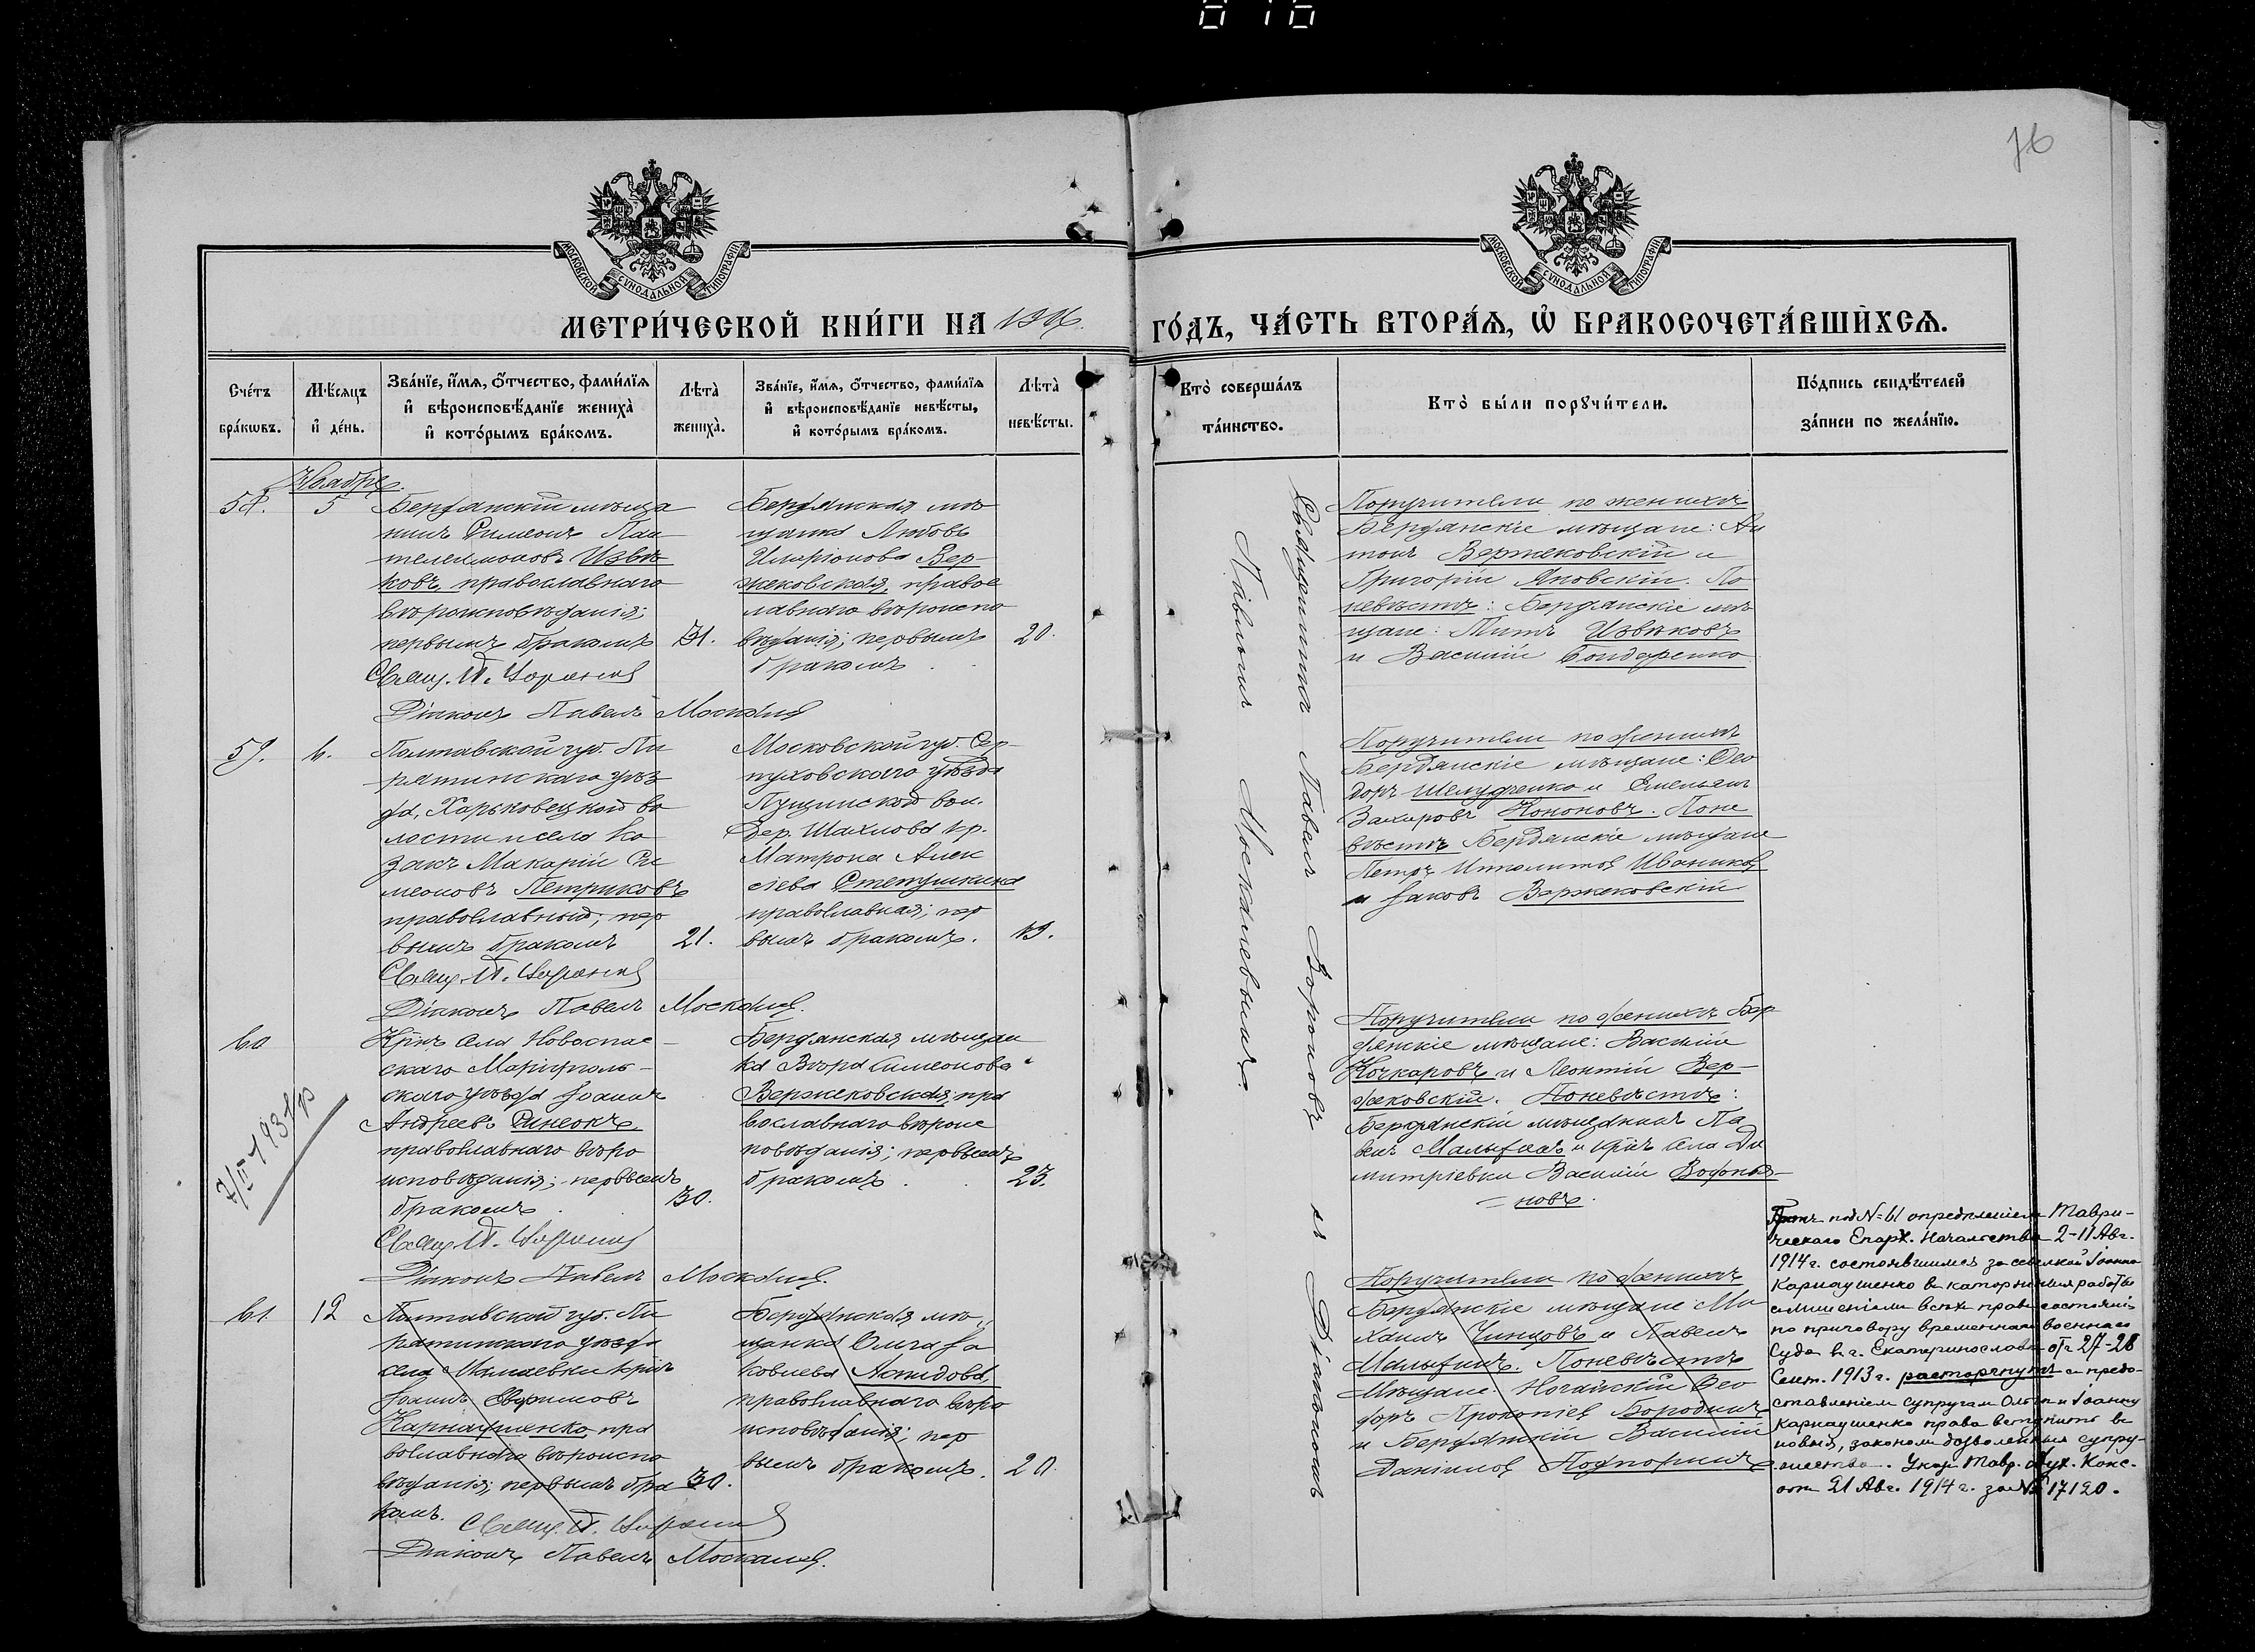 76
МОСКОВСКОЙ СУНОДАЛЬНОЙ ТИПОГРАФІИ
МОСКОВСКОЙ СУНОДАЛЬНОЙ ТИПОГРАФІИ
МЕТРИ́ЧЕСКОЙ КНИ́ГИ НА 1906
ГО́ДЪ, ЧА́СТЬ ВТОРА́Ѧ, Ѡ҆ БРАКОСОЧЕТА́ВШИХСѦ.
Сче́тъ бра́кѡвъ.
Мѣ́сѧцъ и҆ де́нь.
Зва́нїе, и҆́мѧ, ѻ҆́тчество, фами́лїѧ
и҆ вѣроисповѣ́данїе жениха̀
и҆ кото́рымъ бра́комъ.
Лѣ́та̀ жениха̀.
Зва́нїе, и҆́мѧ, ѻ҆́тчество, фами́лїѧ
и҆ вѣроисповѣ́данїе невѣ́сты,
и҆ кото́рымъ бра́комъ.
Лѣ́та̀ невѣ́сты.
Кто̀ соверша́лъ
та́инство.
Кто̀ бы́ли порꙋчи́тели.
По́дпись свидѣ́телей
за́писи по жела́нїю.
Ноябрь.
58. 5
Бердянскій мѣща
нинъ Симеонъ Пан
телеимоновъ Извѣ
ковъ, православнаго
вѣроисповѣданія;
первымъ бракомъ 31.
Бердянская мѣ
щанка Любовь
Иларіонова Вер-
жековская, правос
лавнаго вѣроиспо
вѣданія; первымъ 20.
бракомъ.
Свящ. П. Воронов
Діаконъ Павелъ Москалев
Поручители по женихѣ
Бердянскіе мѣщане: Ан
тонъ Вержековскій и
Григорій Яновскій. По
невѣстѣ: Бердянскіе мѣ
щане: Титъ Извѣковъ
и Василій Бондаренко
59. 6.
Полтавской губ. Пи
рятинскаго уѣз
да, Харьковецкой во
лости и села ко
закъ Макарій Си
меоновъ Петриковъ
православный; пер
вымъ бракомъ 21.
Московской губ. Сер-
пуховскаго уѣзда
Пущинской вол.
Дер. Шахлова кр.
Матрона Алек
сіева Стетушкина
православная; пер
вымъ бракомъ. 19.
Свящ. П. Воронов
Діаконъ Павелъ Москалев.
Поручители по женихѣ
Бердянскіе мѣщане: Ѳео
доръ Шелудченко и Емельянъ
Захаровъ Кононовъ. Поне
вѣстѣ Бердянскіе мѣщане
Петръ Ипполитов Иваников
и Іаковъ Вержековскій
60
Крнъ села Новоспас-
скаго Маріуполь-
скаго уѣзда Іоаннъ
Андреевъ Синеокъ,
православнаго вѣро
исповѣданія; первымъ
бракомъ. 30.
Бердянская мѣщан
ка Вѣра Симеонова
Вержековская; пра
вославнаго вѣроис
повѣданія; первымъ
бракомъ. 23.
Свящ. П. Воронов
Діаконъ Павелъ Москалев.
Поручители по женихѣ Бер
дянскіе мѣщане: Василій
Кочкаровъ и Леонтій Вер-
жековскій. Поневѣстѣ:
Бердянскій мѣщанинъ Па
велъ Малыхинъ и крнъ села Ди
митріевки Василій Водопья-
новъ.
61. 12
Полтавской губ. Пи
рятинскаго уѣзда
села Мамаевки крнъ
Іоаннъ Евфимовъ
Карнаушенко, пра
вославнаго вѣроиспо
вѣданія; первымъ бра 30.
комъ.
Бердянская мѣ
щанка Ольга Іа
ковлева
православнаго вѣро
исповѣданія; пер
вымъ бракомъ. 20.
Свящ. П. Воронов
Діаконъ Павелъ Москалев.
Поручители по женихѣ
Бердянскіе мѣщане Ми
хаилъ и Павелъ
Малыхинъ. Поневѣстѣ
Мѣщане. Ногайскій Ѳео
доръ Прокопіев Бородинъ
и Бердянскій Василій
Даніилов
Священникъ Павелъ Вороновъ и Діакономъ
Павломъ Москалевымъ.
Бракъ под № 61 опредѣленіем Таври-
ческаго Епарх. Начальства 2-11 Авг.
1914 г. состоявшимся за ссылкой Іоанна
Карнаушенко в каторжныя работы
с лишеніем всѣх прав состоянія
по приговору временнаго военнаго
Суда в г. Екатеринославѣ от 27-28
Сент. 1913 г. расторгнутъ с предо-
ставленіем супругам Ольгѣ и Іоанну
Карнаушенко права вступить в
новыя, закономъ дозволенныя супру-
жества. Указ Тавр. Дух. Конс.
отъ 21 Авг. 1914 г. за № 17120.